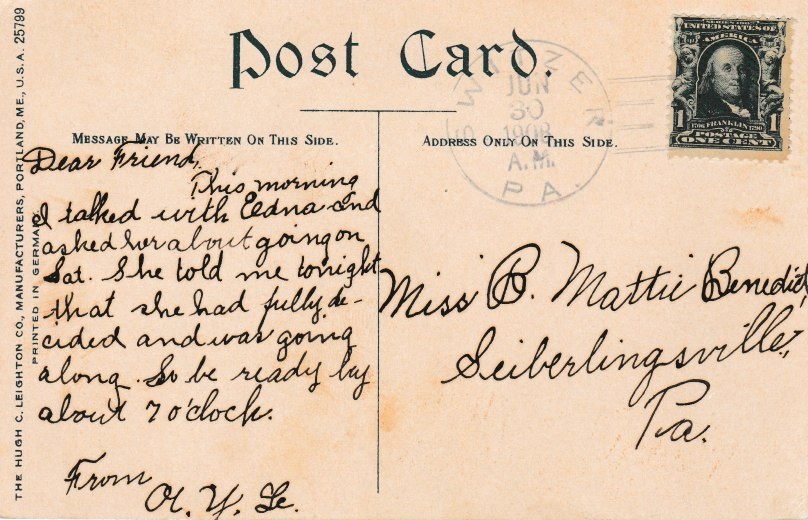 Post Card.
SWITZER
JUN
30
1908
A.M.
PA.
SERIES 1902
UNITED STATES OF
AMERICA
1 1
FRANKLIN
POSTAGE
ONE CENT
MESSAGE MAY BE WRITTEN ON THIS SIDE.
ADDRESS ONLY ON THIS SIDE.
Dear Friend,
This morning
I talked with Edna and
asked her about going on
Sat. She told me tonight
that she had fully de-
cided and was going
along. So be ready by
about 7 o'clock.
From
Miss B. Mattie Benedict
Seiberlingsville,
Pa.
THE HUGH C. LEIGHTON CO., MANUFACTURERS, PORTLAND, ME., U.S.A. 25799
PRINTED IN GERMANY